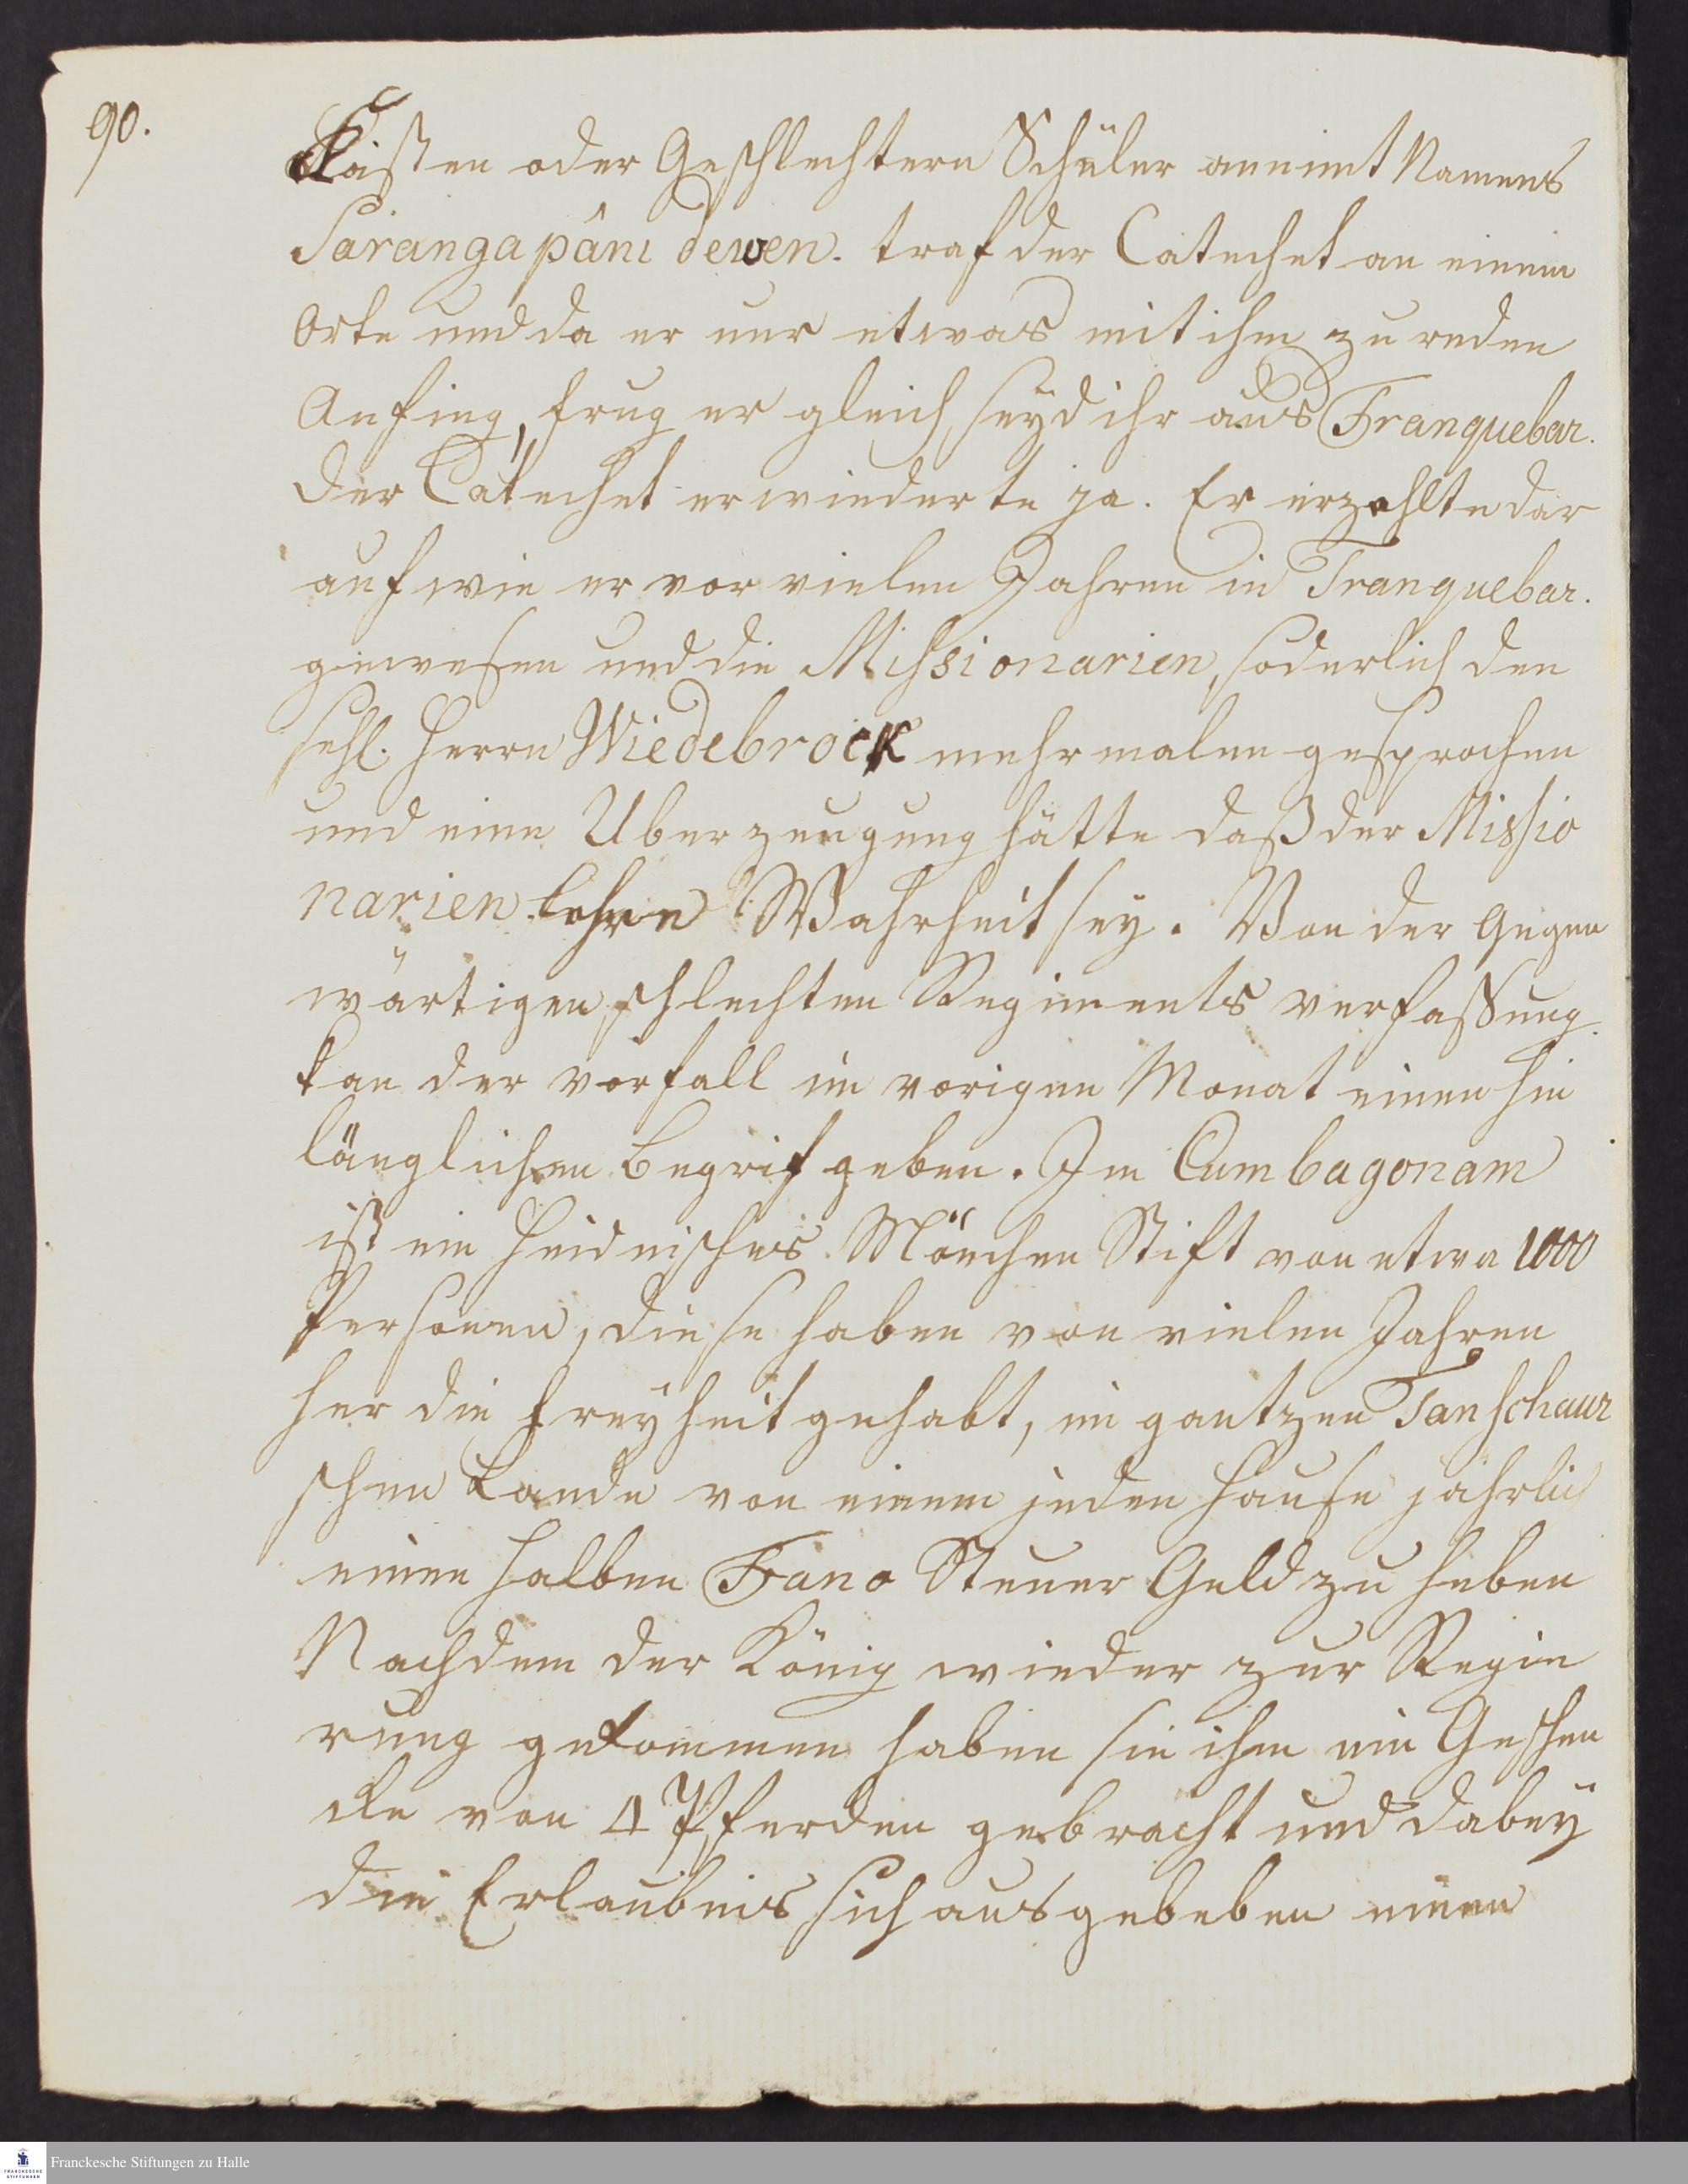 90.
Kasten oder Geschlechtern Schüler annimt Namens
Sarangapâni dewen. traf der Catechet an einem
Orte und da er nur etwas mit ihm zu reden
Anfing, frug er gleich, seyd ihr aus Tranquebar.
der Catechet erwiederte ja. Er erzahlte dar
auf wie er vor vielen Jahren in Tranquebar.
gewesen und die Missionarien, soderlich den
sehl. Herrn Wiedebrock mehrmalen gesprochen
und eine Uberzeugung hätte daß der Missio
narien Lehre Wahrheit sey. Von der Gegen
wärtigen schlechten Regiments verfassung
kan der vorfall im vorigen Monat einen hin
länglichen Begrif geben. Im Cumbagonam
ist ein Heidnisches Mönchen Stift von etwa 1000
Personen, diese haben von vielen Jahren
her die Freyheit gehabt, im gantzen Tanschaur
schen Lande von einem jeden Hause jährlich
einen halben Fano Steuer Geld zu heben
Nachdem der König wieder zur Regie
rung gekommen haben sie ihm ein Geschen
cke von 4 Pferden gebracht und dabey
die Erlaubnis sich ausgebeben einen
Franckesche Stiftungen zu Halle
FRANCKESCHE
STIFTUNGEN